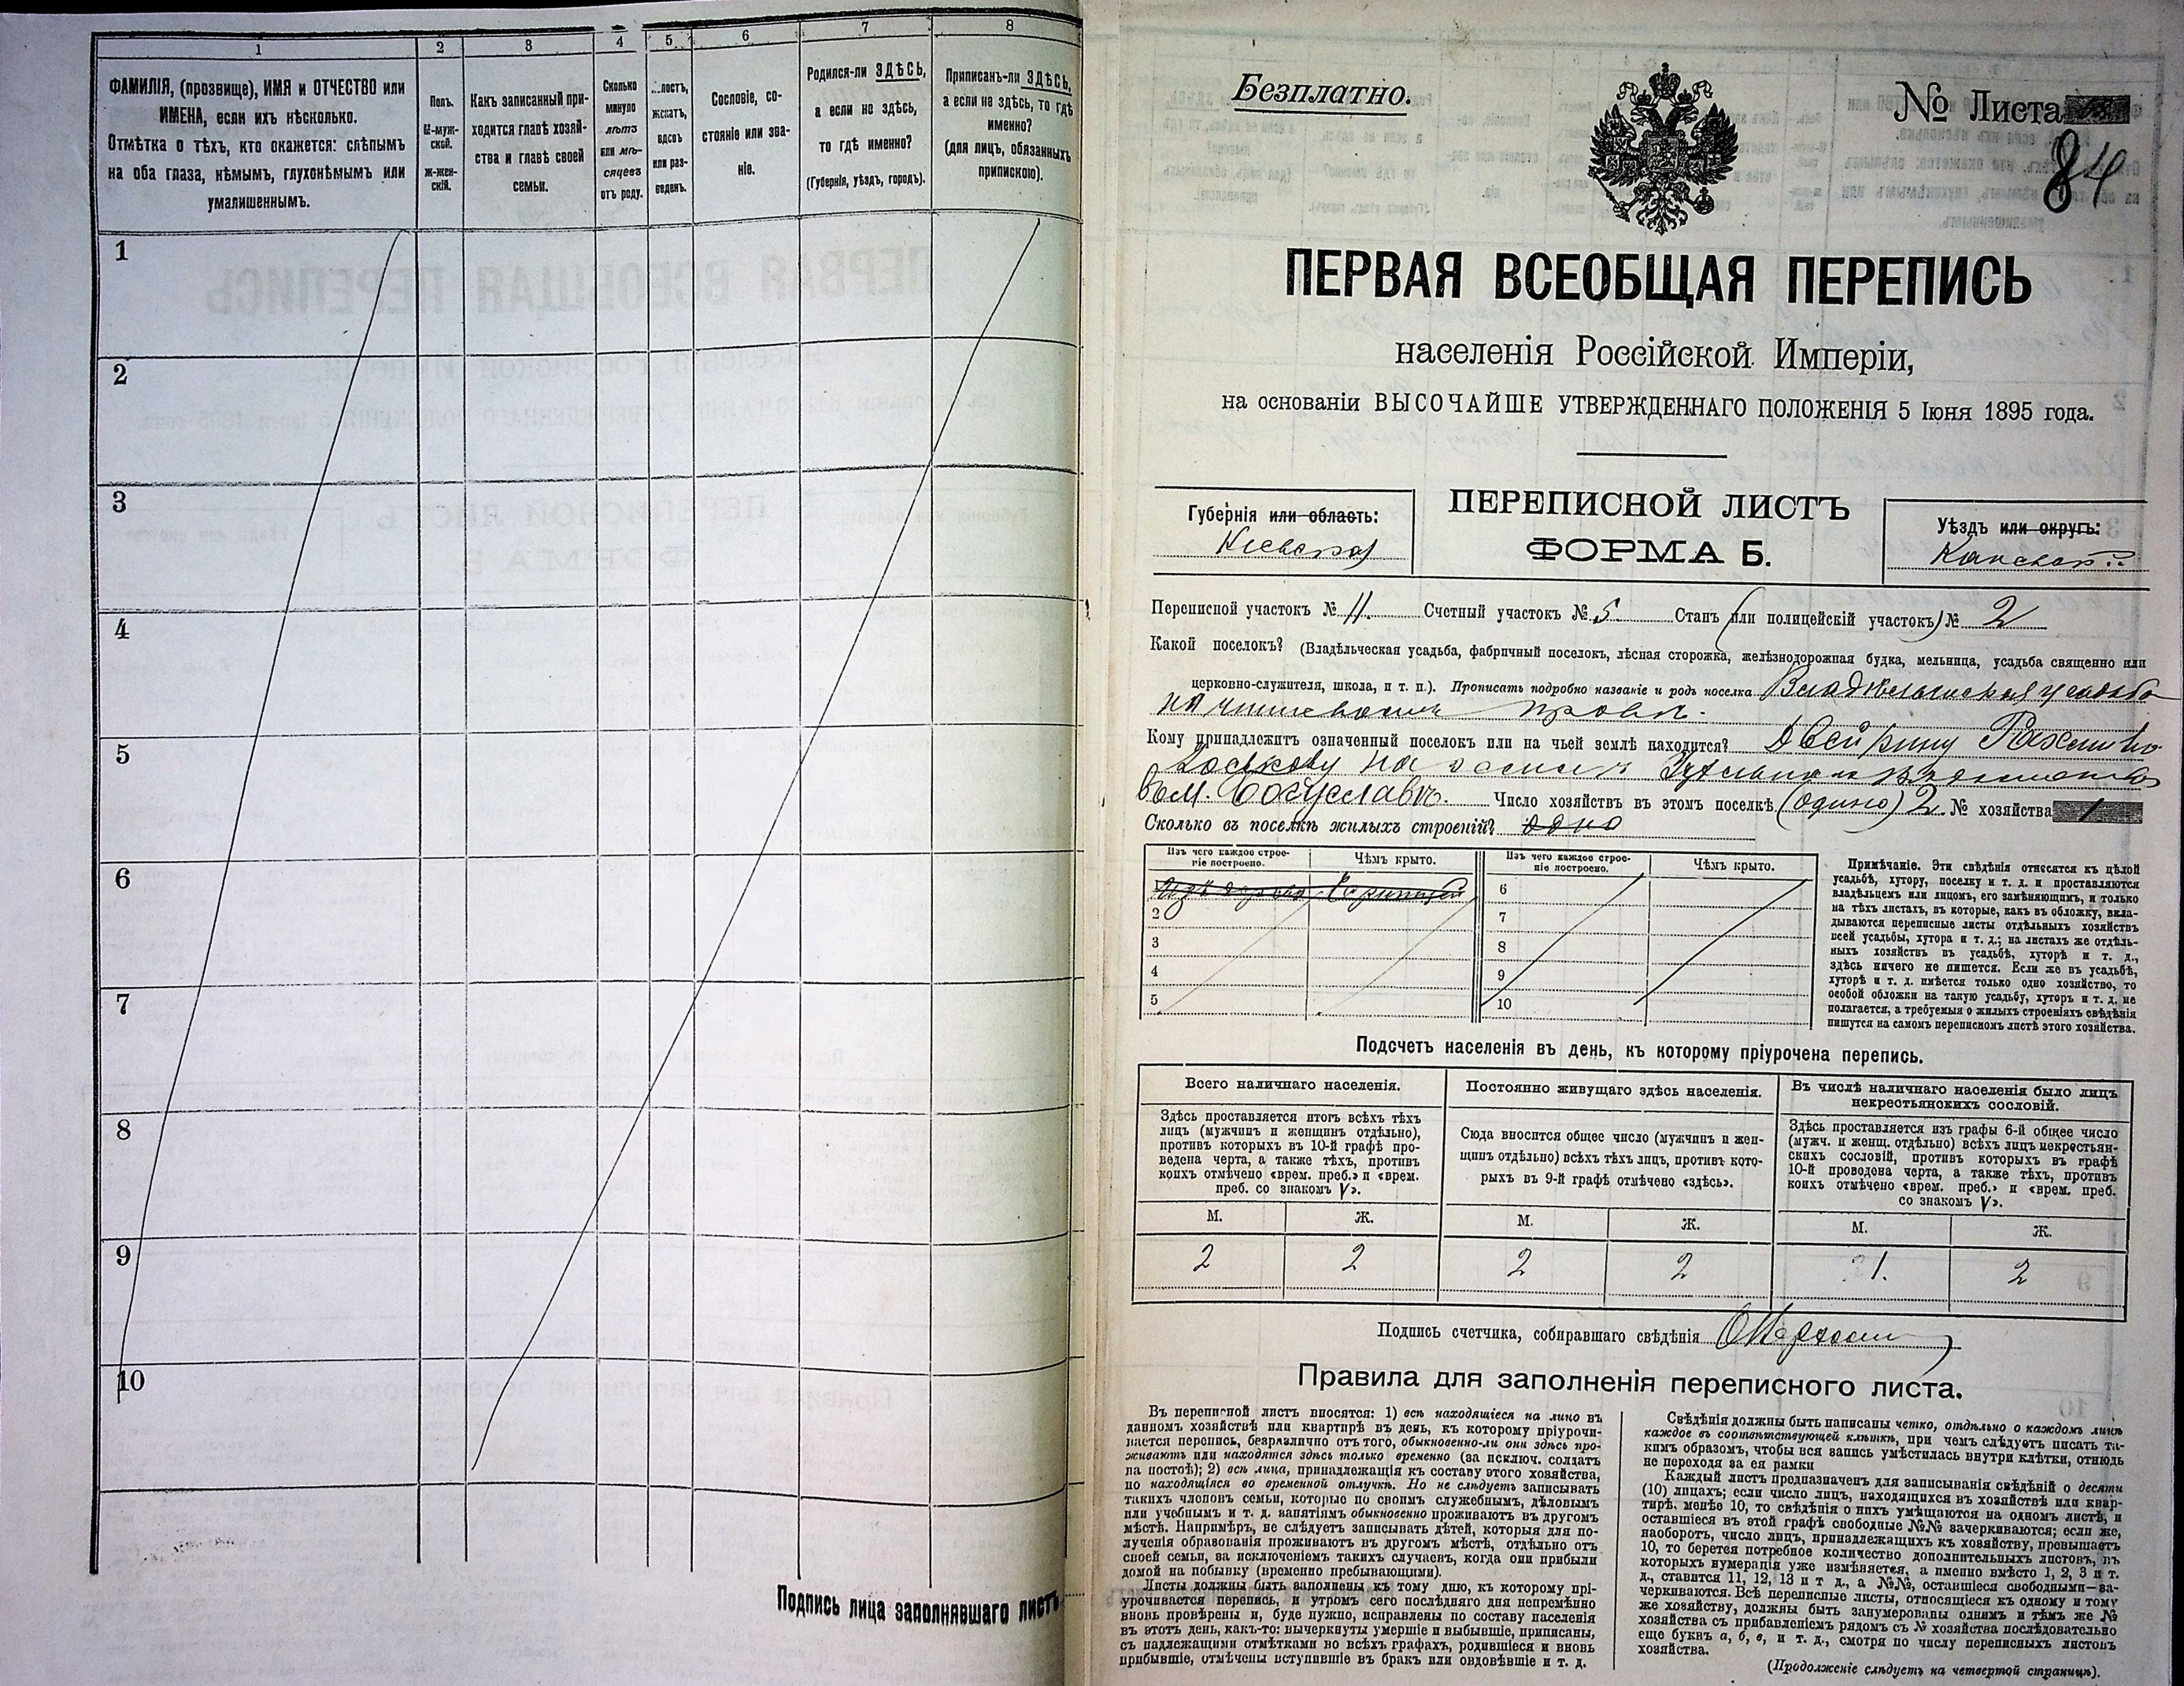 1 2 3 4 5 6 7 8
ФАМИЛІЯ, (прозвище), ИМЯ и ОТЧЕСТВО или
ИМЕНА, если ихъ нѣсколько.
Отмѣтка о тѣхъ, кто окажется: слѣпымъ
на оба глаза, нѣмымъ, глухонѣмымъ или
умалишеннымъ.
Полъ.
М-муж-
ской.
ж-жен-
скій.
Какъ записанный при-
ходится главѣ хозяй-
ства и главѣ своей
семьи.
Сколько
минуло
лѣтъ
или мѣ-
сяцевъ
отъ роду.
лостъ,
женатъ,
вдовъ
или раз-
веденъ.
Сословіе, со-
стояніе или зва-
ніе.
Родился-ли ЗДѢСЬ,
а если не здѣсь,
то гдѣ именно?
(Губернія, уѣздъ, городъ).
Приписанъ-ли ЗДѢСЬ,
а если не здѣсь, то гдѣ
именно?
(для лицъ, обязанныхъ
припискою).
1
2
3
4
5
6
7
8
9
10
Подпись лица заполнявшаго листъ
Безплатно.
№ Листа
84
ПЕРВАЯ ВСЕОБЩАЯ ПЕРЕПИСЬ
населенія Россійской Имперіи,
на основаніи ВЫСОЧАЙШЕ УТВЕРЖДЕННАГО ПОЛОЖЕНІЯ 5 Іюня 1895 года.
Губернія или область:
Кіевская
ПЕРЕПИСНОЙ ЛИСТЪ
ФОРМА Б.
Уѣздъ или округъ:
Каневскій
Переписной участокъ № 11. Счетный участокъ № 5 Станъ (или полицейскій участокъ) № 2
Какой поселокъ? (Владѣльческая усадьба, фабричный поселокъ, лѣсная сторожка, желѣзнодорожная будка, мельница, усадьба священно или
церковно-служителя, школа, и т. п.). Прописать подробно названіе и родъ поселка Владѣльческая усадьба
на чиншевомъ правѣ.
Кому принадлежитъ означенный поселокъ или на чьей землѣ находится?
на землѣ Удѣльнаго вѣдомства
въ м. Богуславѣ. Число хозяйствъ въ этомъ поселкѣ (одино) 2 № хозяйства 1
Сколько въ поселкѣ жилыхъ строеній? одно
Изъ чего каждое строе-
ніе построено.
Чѣмъ крыто.
Изъ чего каждое строе-
ніе построено.
Чѣмъ крыто.
1 6
2 7
3 8
4 9
5 10
Примѣчаніе. Эти свѣдѣнія относятся къ цѣлой
усадьбѣ, хутору, поселку и т. д. и проставляются
владѣльцемъ или лицомъ, его замѣняющимъ, и только
на тѣхъ листахъ, въ которые, какъ въ обложку, вкла-
дываются переписные листы отдѣльныхъ хозяйствъ
всей усадьбы, хутора и т. д.; на листахъ же отдѣль-
ныхъ хозяйствъ въ усадьбѣ, хуторѣ и т. д.,
здѣсь ничего не пишется. Если же въ усадьбѣ,
хуторѣ и т. д. имѣется только одно хозяйство, то
особой обложки на такую усадьбу, хуторъ и т. д. не
полагается, а требуемыя о жилыхъ строеніяхъ свѣдѣнія
пишутся на самомъ переписномъ листѣ этого хозяйства.
Подсчетъ населенія въ день, къ которому пріурочена перепись.
Всего наличнаго населенія.
Здѣсь проставляется итогъ всѣхъ тѣхъ
лицъ (мужчинъ и женщинъ отдѣльно),
противъ которыхъ въ 10-й графѣ про-
ведена черта, а также тѣхъ, противъ
коихъ отмѣчено «врем. преб.» и «врем.
преб. со знакомъ V».
Постоянно живущаго здѣсь населенія.
Сюда вносится общее число (мужчинъ и жен-
щинъ отдѣльно) всѣхъ тѣхъ лицъ, противъ кото-
рыхъ въ 9-й графѣ отмѣчено «здѣсь».
Въ числѣ наличнаго населенія было лицъ
некрестьянскихъ сословій.
Здѣсь проставляется изъ графы 6-й общее число
(мужч. и женщ. отдѣльно) всѣхъ лицъ некрестьян-
скихъ сословій, противъ которыхъ въ графѣ
10-й проведена черта, а также тѣхъ, противъ
коихъ отмѣчено «врем. преб.» и «врем. преб.
со знакомъ V».
М. Ж. М. Ж. М. Ж.
2 2 2 2 1. 2
Подпись счетчика, собиравшаго свѣдѣнія
Правила для заполненія переписного листа.
Въ переписной листъ вносятся: 1) всѣ находящіеся на лицо въ
данномъ хозяйствѣ или квартирѣ въ день, къ которому пріурочи-
вается перепись, безразлично отъ того, обыкновенно-ли они здѣсь про-
живаютъ или находятся здѣсь только временно (за исключ. солдатъ
на постоѣ); 2) всѣ лица, принадлежащія къ составу этого хозяйства,
но находящіяся во временной отлучкѣ. Но не слѣдуетъ записывать
такихъ членовъ семьи, которые по своимъ служебнымъ, дѣловымъ
или учебнымъ и т. д. занятіямъ обыкновенно проживаютъ въ другомъ
мѣстѣ. Напримѣръ, не слѣдуетъ записывать дѣтей, которыя для по-
лученія образованія проживаютъ въ другомъ мѣстѣ, отдѣльно отъ
своей семьи, за исключеніемъ такихъ случаевъ, когда они прибыли
домой на побывку (временно пребывающими).
Листы должны быть заполнены къ тому дню, къ которому прі-
урочивается перепись, и утромъ сего послѣдняго дня непремѣнно
вновь провѣрены и, буде нужно, исправлены по составу населенія
въ этотъ день, какъ-то: вычеркнуты умершіе и выбывшіе, приписаны,
съ надлежащими отмѣтками во всѣхъ графахъ, родившіеся и вновь
прибывшіе, отмѣчены вступившіе въ бракъ или овдовѣвшіе и т. д.
Свѣдѣнія должны быть написаны четко, отдѣльно о каждомъ лицѣ
каждое въ соотвѣтствующей клѣткѣ, при чемъ слѣдуетъ писать та-
кимъ образомъ, чтобы вся запись умѣстилась внутри клѣтки, отнюдь
не переходя за ея рамки
Каждый листъ предназначенъ для записыванія свѣдѣній о десяти
(10) лицахъ; если число лицъ, находящихся въ хозяйствѣ или квар-
тирѣ, менѣе 10, то свѣдѣнія о нихъ умѣщаются на одномъ листѣ, и
оставшіеся въ этой графѣ свободные №№ зачеркиваются; если же,
наоборотъ, число лицъ, принадлежащихъ къ хозяйству, превышаетъ
10, то берется потребное количество дополнительныхъ листовъ, въ
которыхъ нумерація уже измѣняется, а именно вмѣсто 1, 2, 3 и т.
д., ставится 11, 12, 13 и т д., а №№, оставшіеся свободными—за-
черкиваются. Всѣ переписные листы, относящіеся къ одному и тому
же хозяйству, должны быть занумерованы однимъ и тѣмъ же №
хозяйства съ прибавленіемъ рядомъ съ № хозяйства послѣдовательно
еще буквъ а, б, в, и т. д., смотря по числу переписныхъ листовъ
хозяйства.
(Продолженіе слѣдуетъ на четвертой страницѣ).